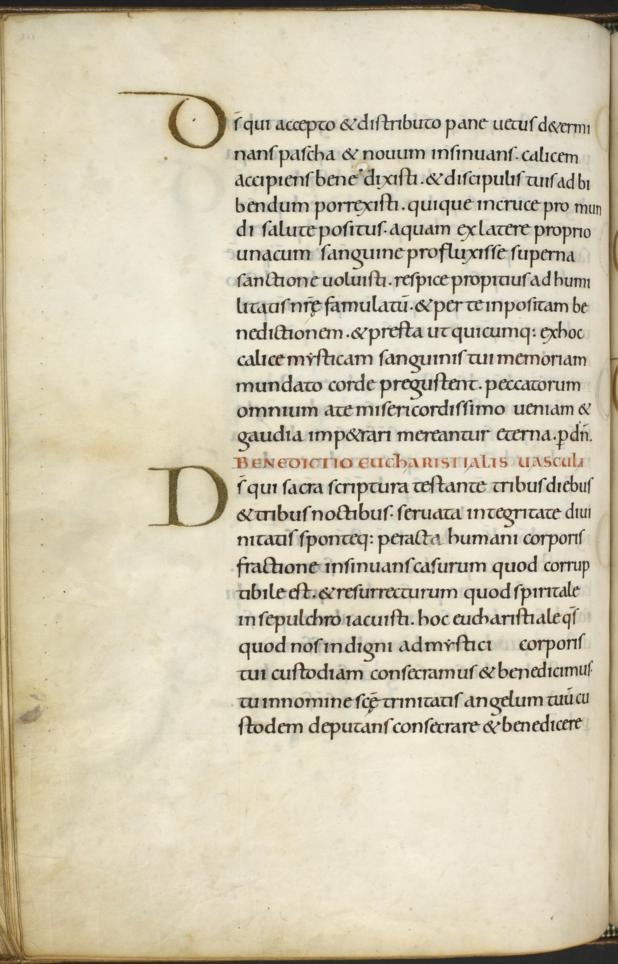 D̄s qui accepto & distributo pane uetus det&ermi
nans pascha & nouum insinuans. calicem
accipiens benedixisti. & discipulis tuis ad bi
bendum porrexisti. quique in cruce pro mun
di salute positus. aquam ex latere proprio
una cum sanguine profluxisse superna
sanctione uoluisti. respice propitius ad humi
litatis nr̄ę famulatū. & per te inpositam be
nedictionem. & presta ut quicumq: ex hoc
calice mẏsticam sanguinis tui memoriam
mundato corde pregustent. peccatorum
omnium a te misericordissimo ueniam &
gaudia imp&rari mereantur eterna. p̄ dn̄.
BENEDICTIO EUCHARISTIALIS UASCULI
D̄s qui sacra scriptura testante tribus diebus
& tribus noctibus. seruata integritate diui
nitatis sponteq: peracta humani corporis
fractione insinuans casurum quod corrup
tibile est. & resurrecturum quod spiritale
in sepulchro iacuisti. hoc eucharistiale qs̄
quod nos indigni ad mẏstici corporis
tui custodiam consecramus & benedicimus.
tu in nomine scę̄ trinitatis angelum tuū cu
stodem deputans consecrare & benedicere